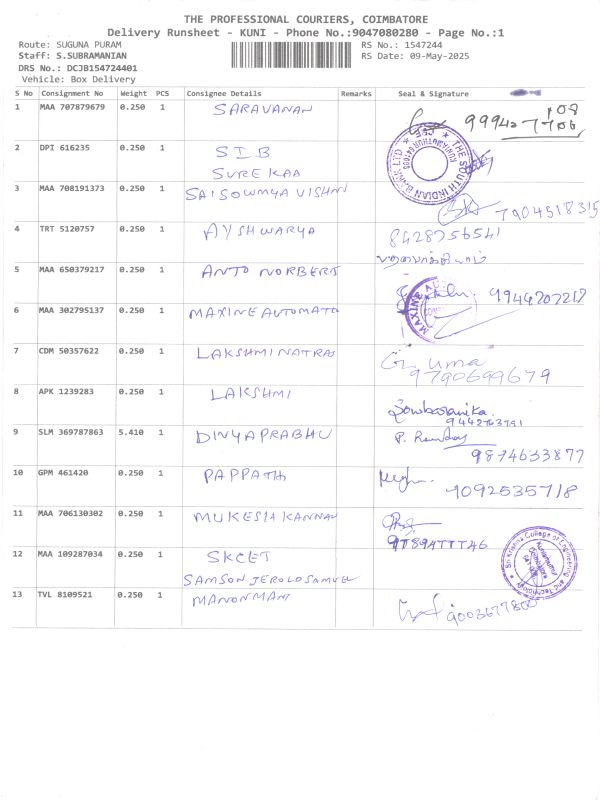 THE PROFESSIONAL COURIERS, COIMBATORE
Delivery Runsheet - KUNI - Phone No.:9047080280 - Page No.:1
Route: SUGUNA PURAM
RS No.: 1547244
Staff: S.SUBRAMANIAN
RS Date: 09-May-2025
DRS No.: DCJB154724401
Vehicle: Box Delivery
S No Consignment No Weight PCS Consignee Details Remarks Seal & Signature
1 MAA 707879679 0.250 1 SARAVANAN
2 DPI 616235 0.250 1 SIB
SUREKAA
THE SOUTH INDIAN BANK LTD
3 MAA 708191373 0.250 1 SAISOWMYA VISHNU
7904518315
4 TRT 5120757 0.250 1 AYSHWARYA 8428756541
5 MAA 650379217 0.250 1 ANTO NORBERS
9944207217
6 MAA 302795137 0.250 1 MAXINE AUTOMATO
MAXINE
7 CDM 50357622 0.250 1 LAKSHMI NATRAJ uma
9790699679
8 APK 1239283 0.250 1 LAKSHMI
9 SLM 369787863 5.410 1 DINYAPRABHU
9874633877
10 GPM 461420 0.250 1 PAPPATH
9092535718
11 MAA 706130302 0.250 1 MUKESH KANNAN
12 MAA 109287034 0.250 1 SKCET
SAMSON JEROLD SAMUEL
Sri Krishna College of Engineering and Technology
13 TVL 8109521 0.250 1 MANONMANI
9003677800